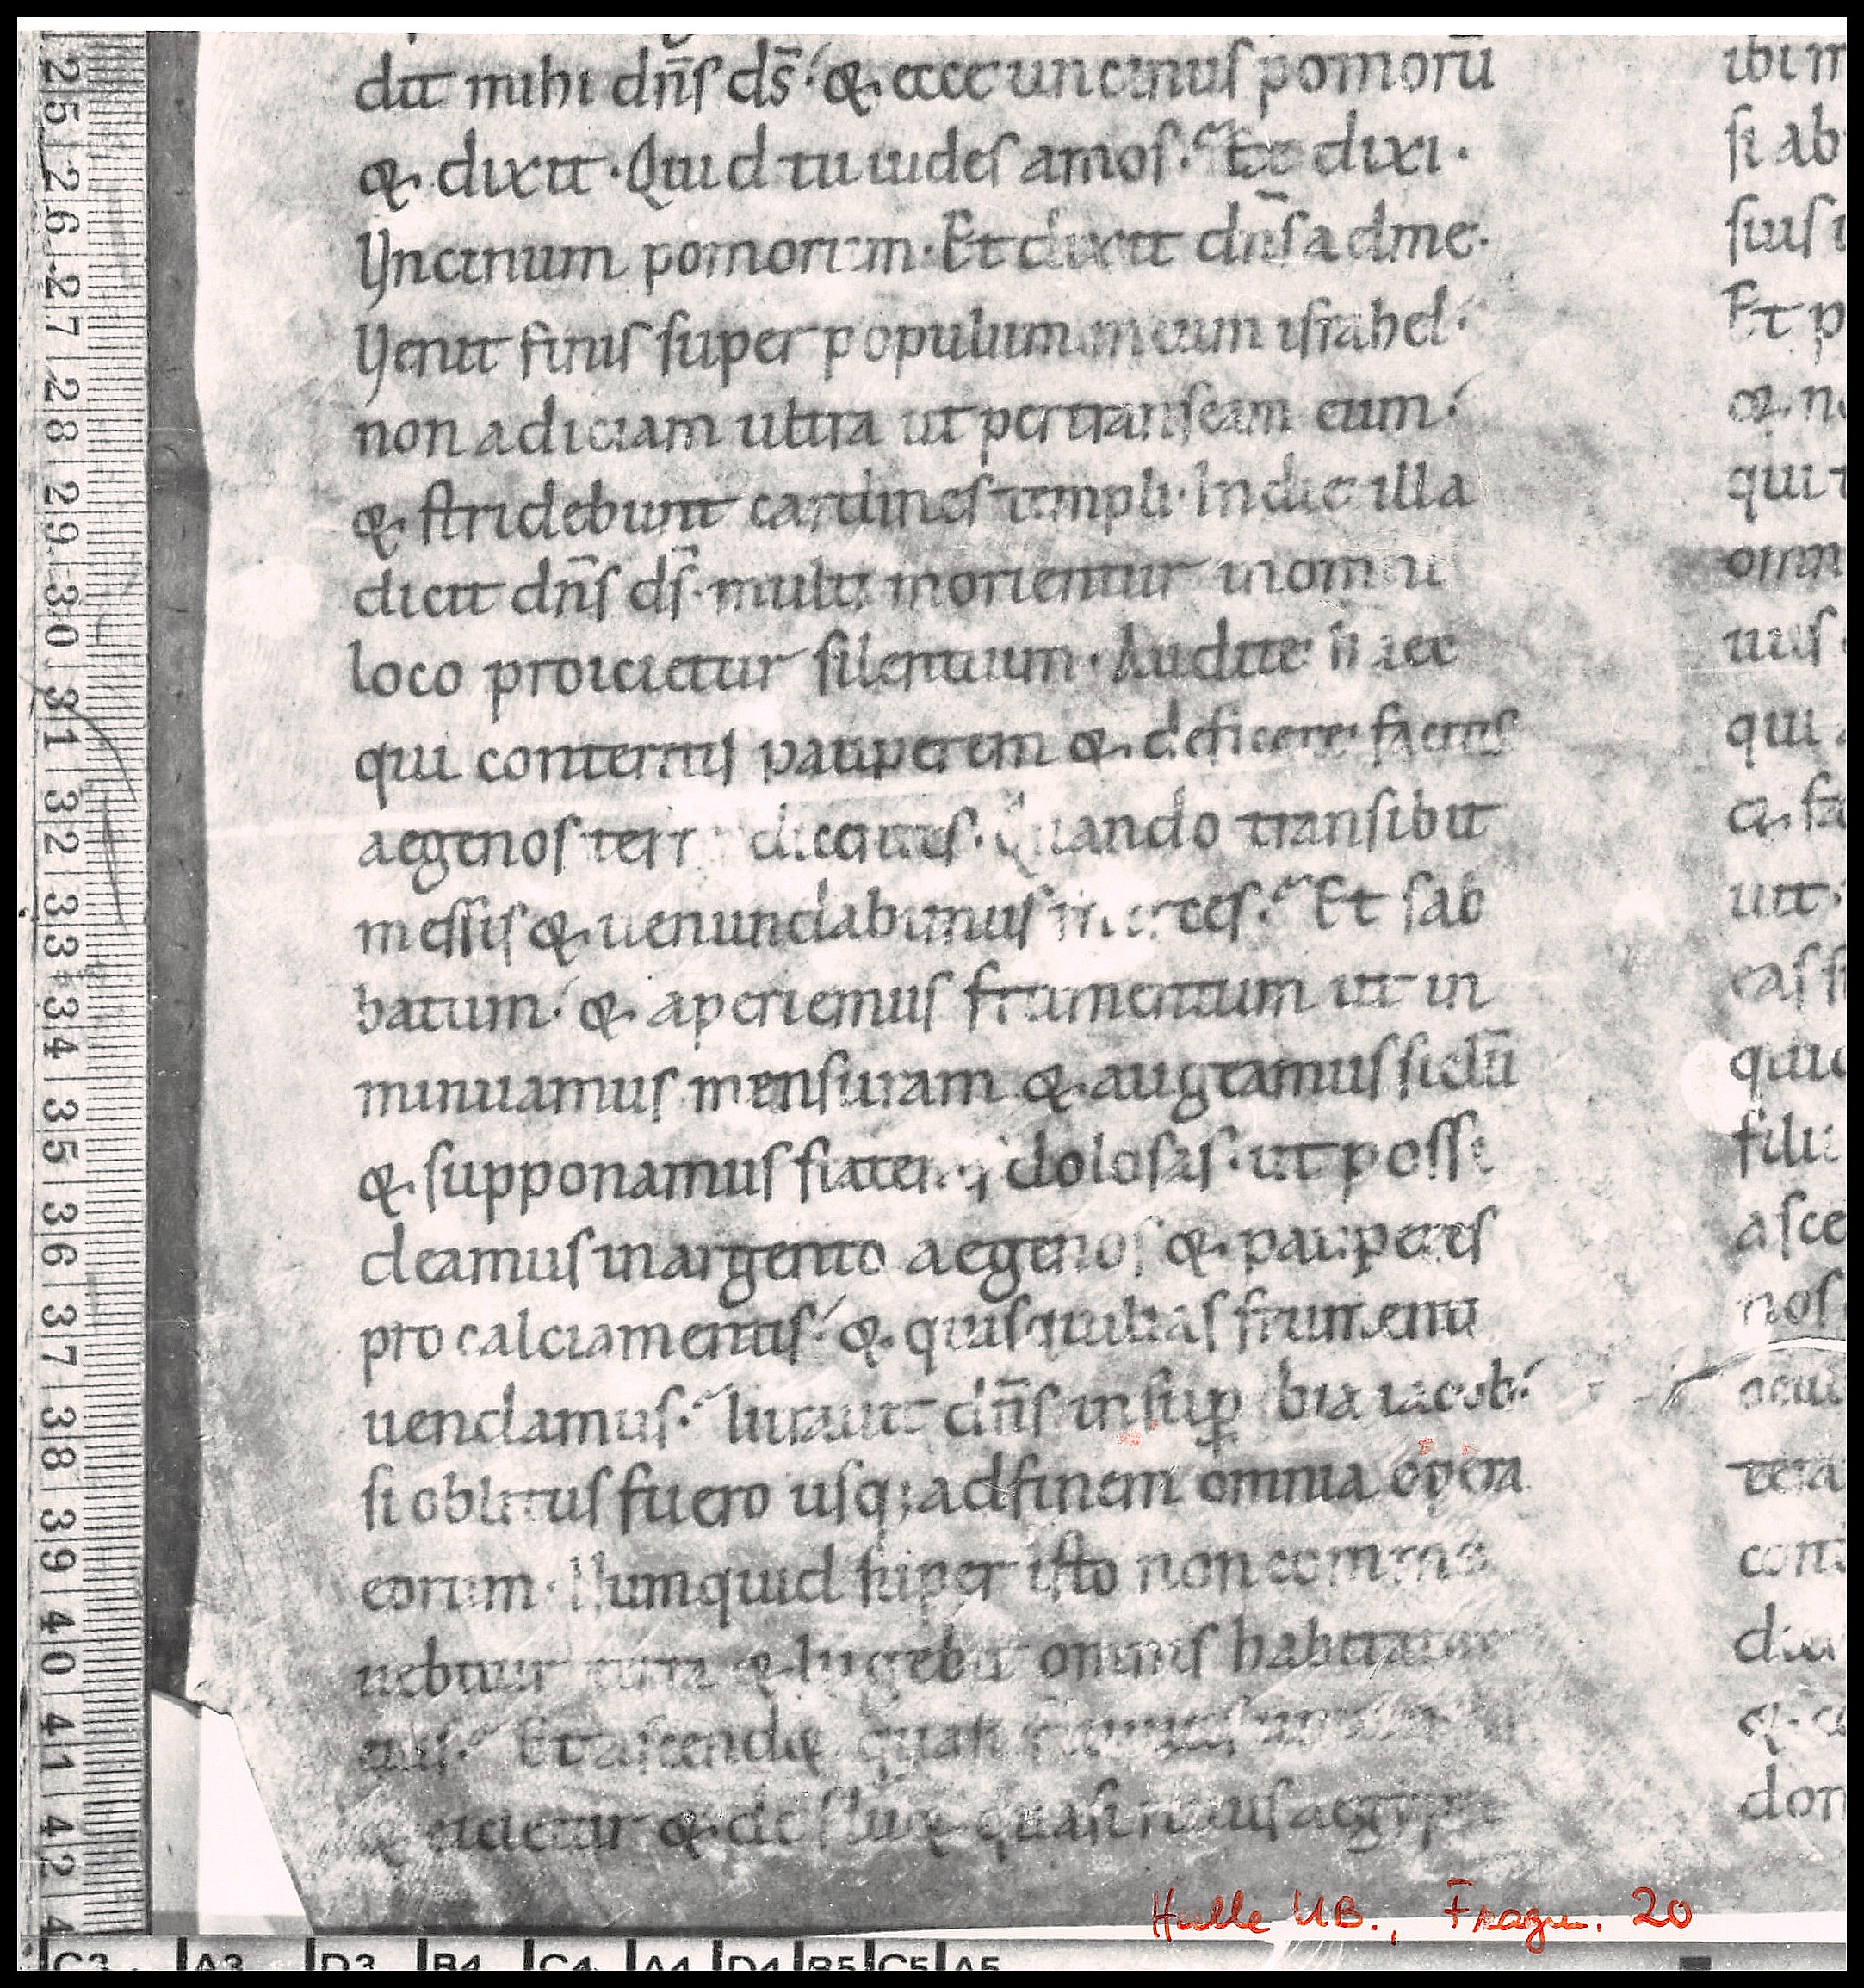 dit mihi dn̄s ds̄ & ecce uncinus pomorū
& dixit · Quid tu uides amos · Et dixi ·
Uncinum pomorum · Et dixit dn̄s ad me ·
Uenit finis super populum meum israhel
non adiciam ultra ut pertranseam eum
& stridebunt cardines templi · In die illa
dicit dn̄s ds̄ · multi morientur in omni
loco proicietur silentium · Audite haec
qui conteritis pauperem & deficere facitis
aegenos dicentes · Quando transibit
messis & uenundabimus merces · Et sab
batum · & aperiemus frumentum ut in
minuamus mensuram & augeamus siclū
& supponamus dolosas · ut possi
deamus in argento aegenos & pauperes
pro calciamentis & quisquilias frumenti
uendamus · Iurauit dn̄s in sup̱bia iacob
si oblitus fuero usq; ad finem omnia opera
eorum · Numquid super isto non commo
uebitur terra & lugebit omnis habitator
eius · Et ascend& quasi
& eicietur & deflu& quasi riuus aegyp
ibi m
si ab
suis
Et p
& n
qui
omn
uus
qui
& fa
uit
eas
quic
filii
asce
nos
ocul
terra
con
dicit
& c
dom
Halle UB., Fragm. 20
25 26 27 28 29 30 31 32 33 34 35 36 37 38 39 40 41 42 4
C3 A3 D3 B4 C4 A4 D4 B5 C5 A5